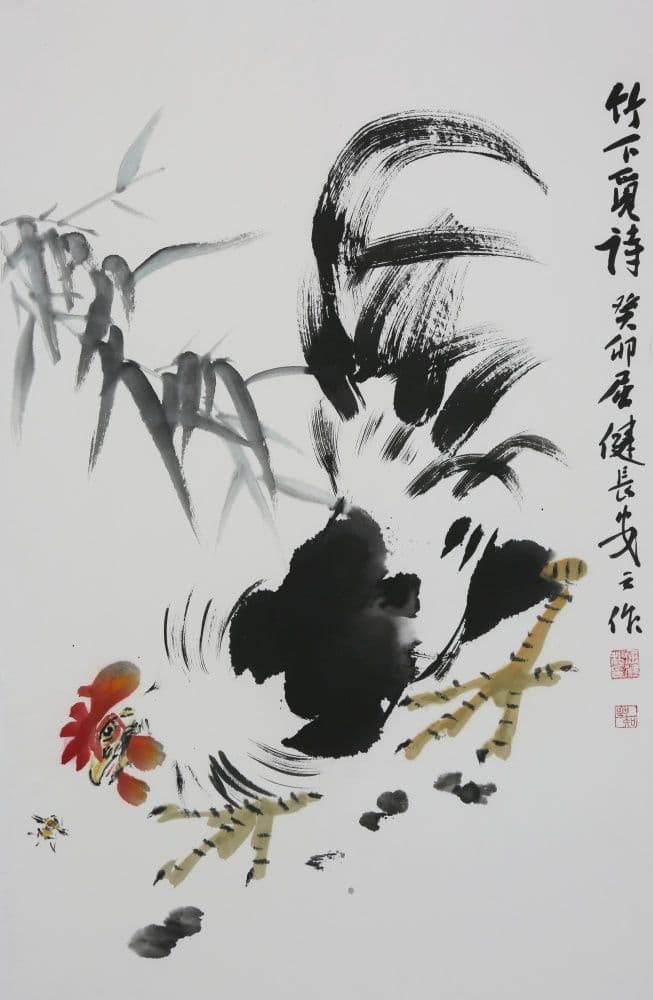 竹下覓詩 癸卯居健長安之作